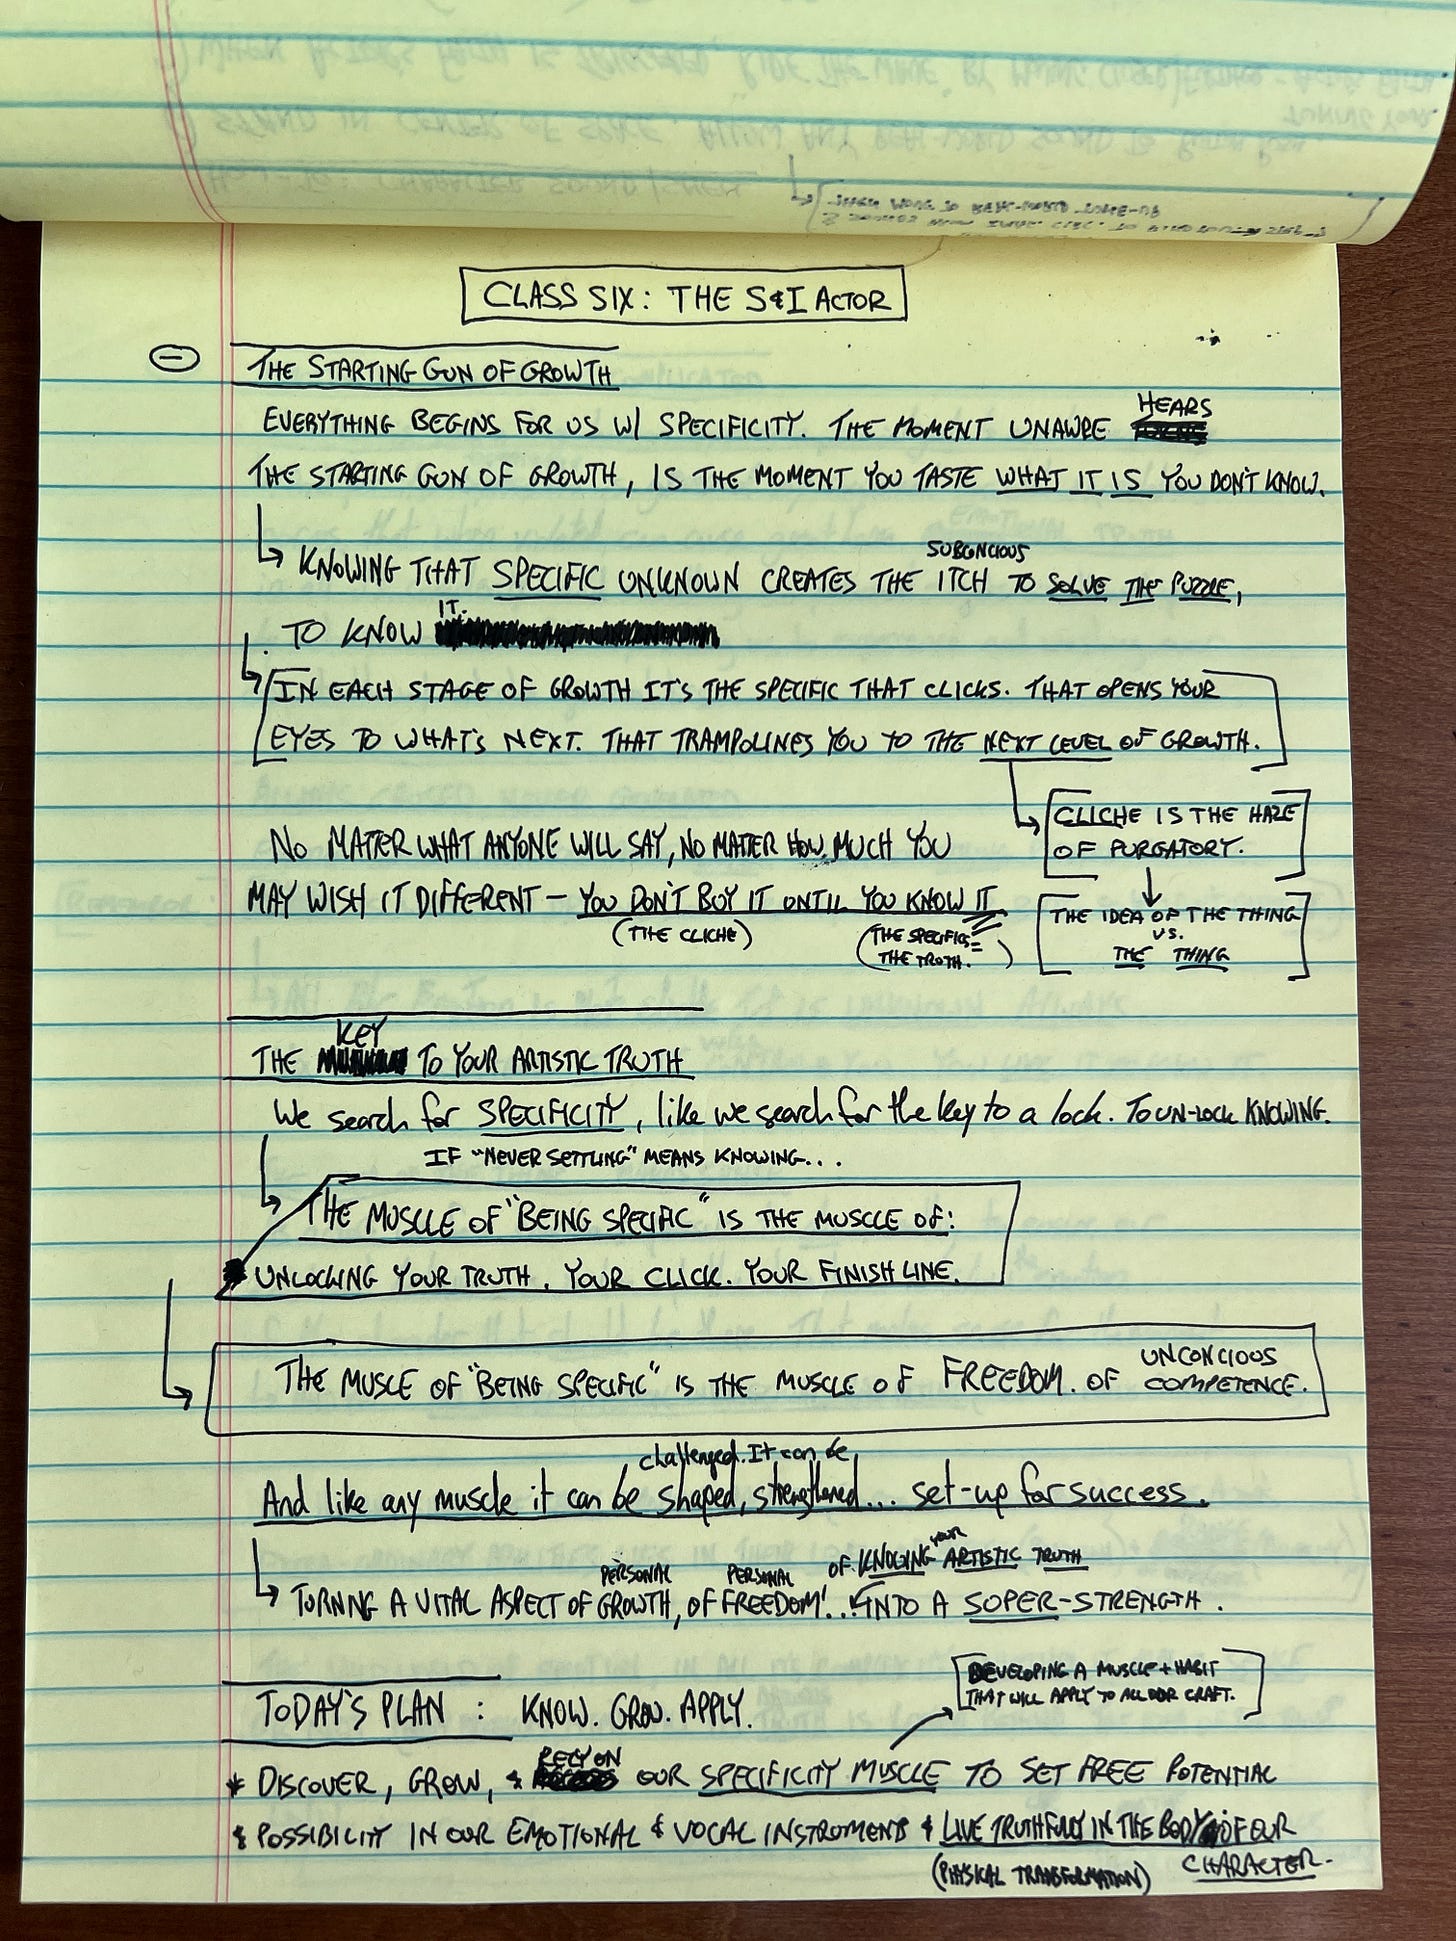 CLASS SIX: THE S&I ACTOR
THE STARTING GUN OF GROWTH
EVERYTHING BEGINS FOR US W/ SPECIFICITY. THE MOMENT UNAWRE HEARS
THE STARTING GUN OF GROWTH, IS THE MOMENT YOU TASTE WHAT IT IS YOU DON'T KNOW.
SUBONCIOUS
KNOWING THAT SPECIFIC UNKNOWN CREATES THE ITCH TO SOLVE THE PUZZLE,
TO KNOW IT.
IN EACH STAGE OF GROWTH IT'S THE SPECIFIC THAT CLICKS. THAT OPENS YOUR
EYES TO WHAT'S NEXT. THAT TRAMPOLINES YOU TO THE NEXT LEVEL OF GROWTH.
CLICHE IS THE HAZE
OF PURGATORY.
THE IDEA OF THE THING
VS.
THE THING
NO MATTER WHAT ANYONE WILL SAY, NO MATTER HOW MUCH YOU
MAY WISH IT DIFFERENT – YOU DON'T BUY IT UNTIL YOU KNOW IT
(THE CLICHE)
(THE SPECIFIC =
THE TRUTH.)
THE KEY TO YOUR ARTISTIC TRUTH
We search for SPECIFICITY, like we search for the key to a lock. TO UN-LOCK KNOWING.
IF "NEVER SETTLING" MEANS KNOWING...
THE MUSCLE OF "BEING SPECIFIC" IS THE MUSCLE OF:
UNLOCKING YOUR TRUTH. YOUR CLICK. YOUR FINISH LINE.
THE MUSCLE OF "BEING SPECIFIC" IS THE MUSCLE OF FREEDOM. OF UNCONCIOUS
COMPETENCE.
challenged. It can be
And like any muscle it can be shaped, strengthened... set-up for success.
PERSONAL PERSONAL OF KNOWING YOUR ARTISTIC TRUTH
TURNING A VITAL ASPECT OF GROWTH, OF FREEDOM... INTO A SUPER-STRENGTH.
DEVELOPING A MUSCLE + HABIT
THAT WILL APPLY TO ALL OUR CRAFT.
TODAY'S PLAN: KNOW. GROW. APPLY.
* DISCOVER, GROW, & RELY ON OUR SPECIFICITY MUSCLE TO SET FREE POTENTIAL
& POSSIBILITY IN OUR EMOTIONAL & VOCAL INSTRUMENTS & LIVE TRUTHFULLY IN THE BODY OF OUR
CHARACTER.
(PHYSICAL TRANSFORMATION)